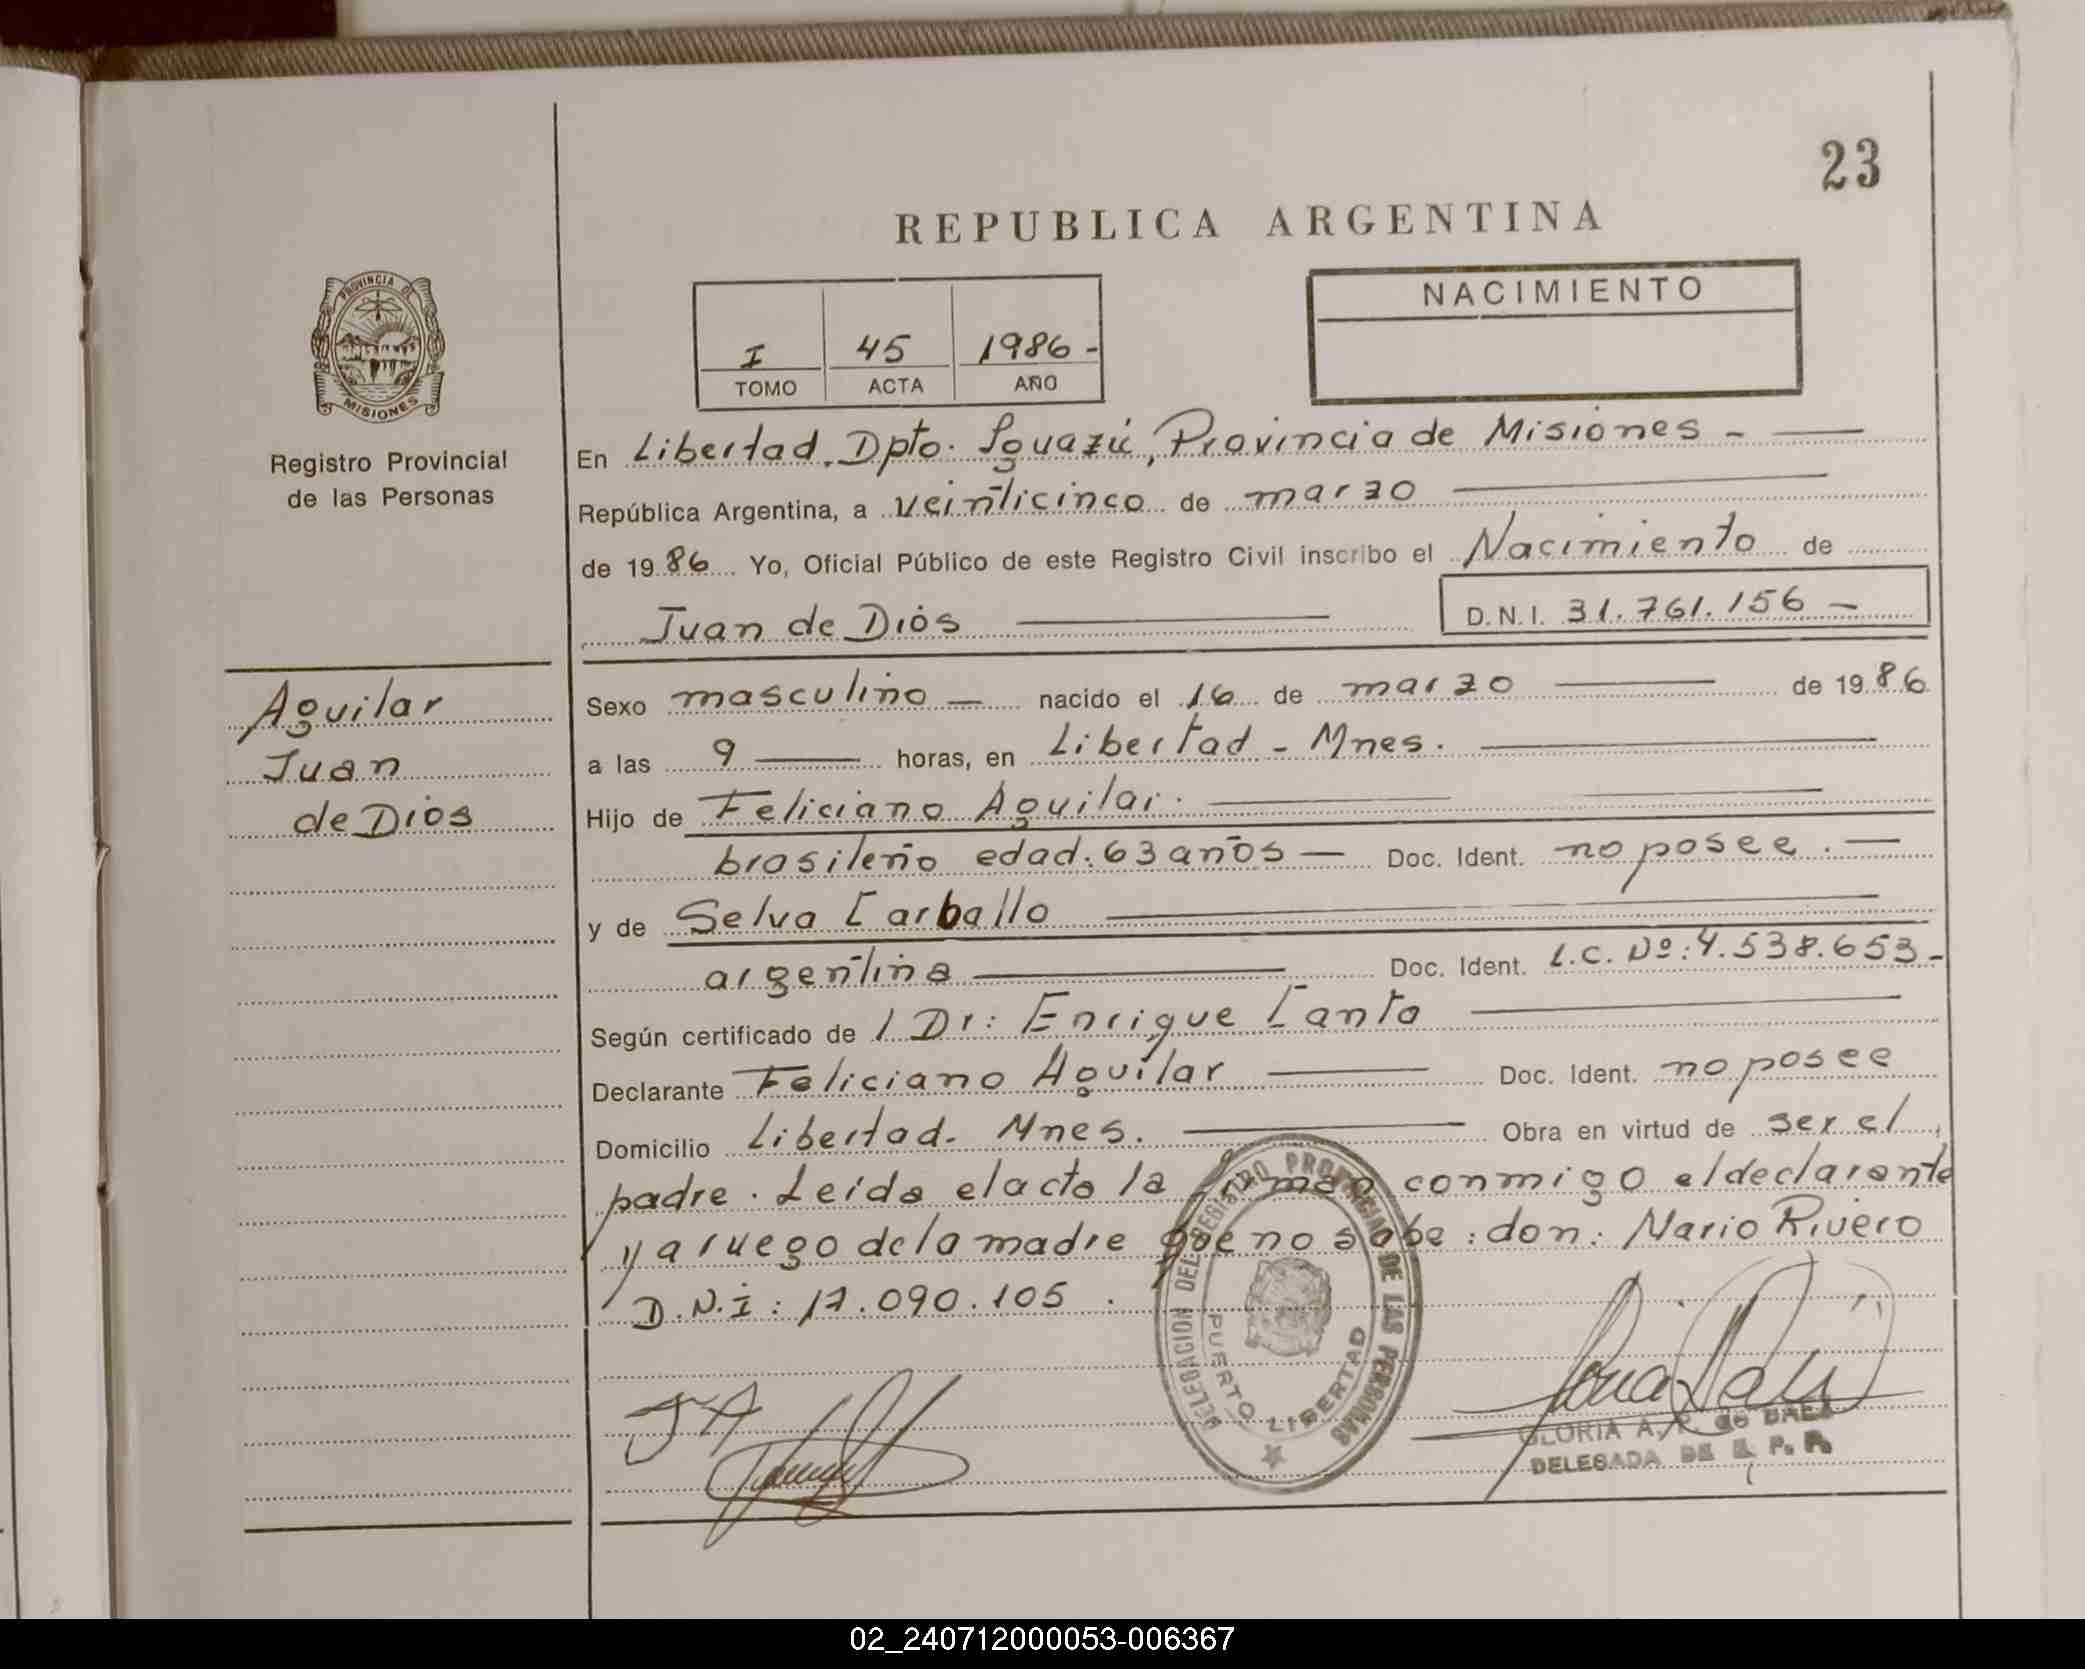 23
REPUBLICA ARGENTINA
I 45 1986 -
TOMO ACTA AÑO
NACIMIENTO
PROVINCIA DE
MISIONES
Registro Provincial
de las Personas
En Libertad, Dpto. Iguazú, Provincia de Misiones -
República Argentina, a veinticinco de marzo
de 1986 Yo, Oficial Público de este Registro Civil inscribo el Nacimiento de
Juan de Dios
D.N.I. 31.761.156 -
Aguilar
Juan
de Dios
Sexo masculino - nacido el 16 de marzo de 1986
a las 9 horas, en Libertad - Mnes.
Hijo de Feliciano Aguilar.
brasileño edad: 63 años - Doc. Ident. no posee. -
y de Selva Carballo
argentina Doc. Ident. L.C. Nº: 4.538.653 -
Según certificado de / Dr: Enrique Canto
Declarante Feliciano Aguilar Doc. Ident. no posee
Domicilio Libertad. Mnes. Obra en virtud de ser el
padre. Leida el acta la firman conmigo el declarante
y a ruego de la madre que no sabe: don: Mario Rivero
D.N.I: 17.090.105.
DELEGACION DEL REGISTRO PROVINCIAL DE LAS PERSONAS
PUERTO LIBERTAD
GLORIA A. P. de
DELEGADA DE R. P. P.
02_240712000053-006367